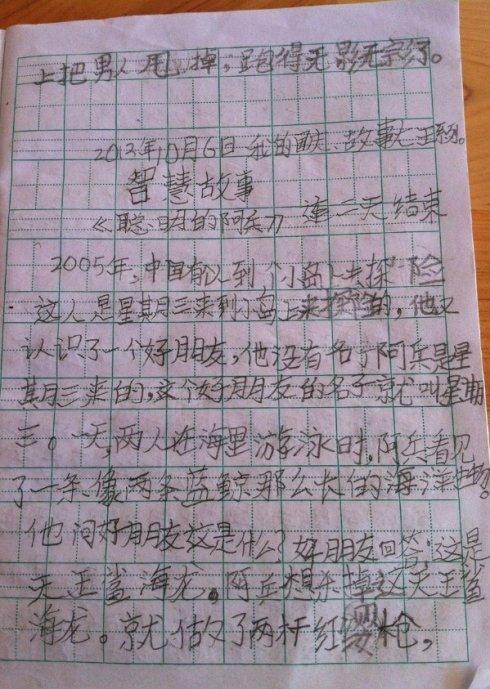 上把男人甩掉，跑得无影无宗了。
2012年10月6日 我的 故事大王
智慧故事
《聪明的阿兵》 第二天结束
2005年，中国有人到个小岛上去探险
这人是星其月三来到小岛上来探险的，他又
认识了一个好朋友，他没有名子阿兵是星
其月三来的，这个好朋友的名子就叫星期
三。一天，两人在海里游泳时，阿兵看见
了一条像两条蓝鲸那么长的海洋生物。
他问好朋友这是什么？好朋友回答：这是
天王鲨海龙。阿兵想杀掉这天王鲨
海龙。就做了两杆红缨枪，